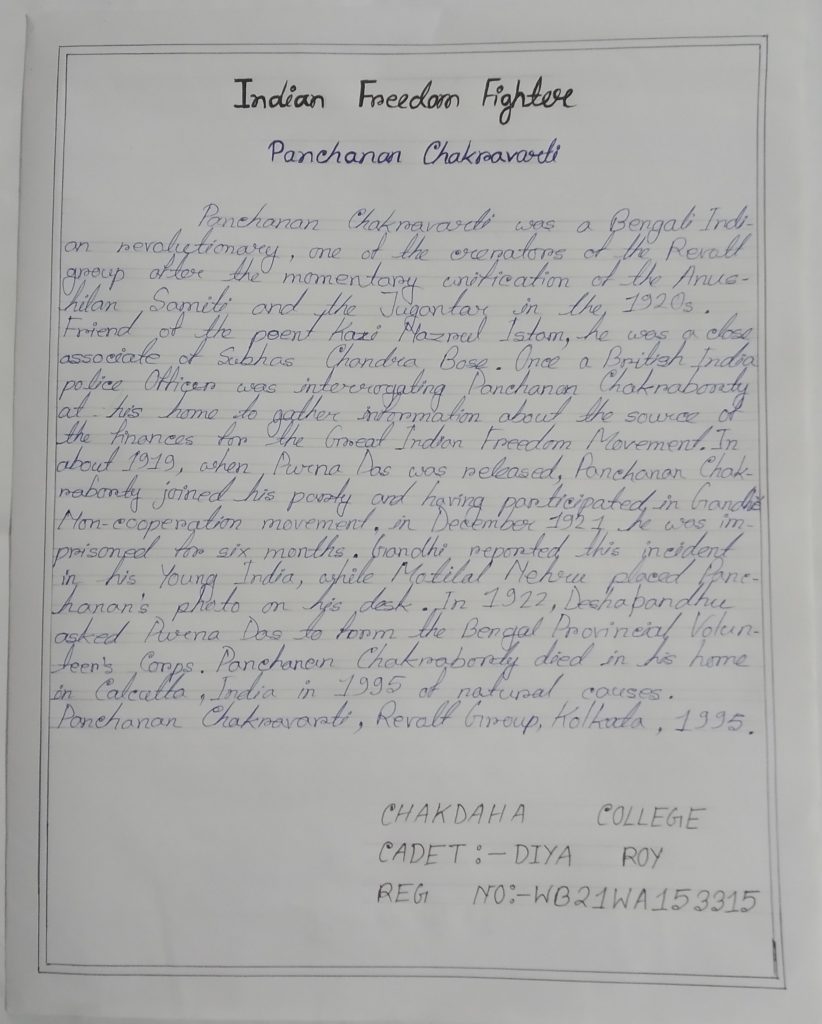 Indian Freedom Fighter
Panchanan Chakravarti
Panchanan Chakravarti was a Bengali Indi-
an revolutionary, one of the crenators of the Revolt
group after the momentary unification of the Anus-
hilan Samiti and the Jugantar in the 1920s.
Friend of the poent Kazi Nazrul Islam, he was a close
associate of Subhas Chandra Bose. Once a British India
police Officer was interrogating Panchanan Chakraborty
at his home to gather information about the source of
the finances for the Great Indian Freedom Movement. In
about 1919, when Purna Das was released, Panchanan Chak-
raborty joined his party and having participated in Gandhi's
Non-cooperation movement, in December 1921 he was im-
prisoned for six months. Gandhi reported this incident
in his Young India, while Motilal Nehru placed Panc-
hanan's photo on his desk. In 1922, Deshapandhu
asked Purna Das to form the Bengal Provincial Volun-
teer's Corps. Panchanan Chakraborty died in his home
in Calcutta, India in 1995 of natural causes.
Panchanan Chakravarti, Revolt Group, Kolkata, 1995.
CHAKDAHA COLLEGE
CADET:- DIYA ROY
REG NO:-WB21WA153315